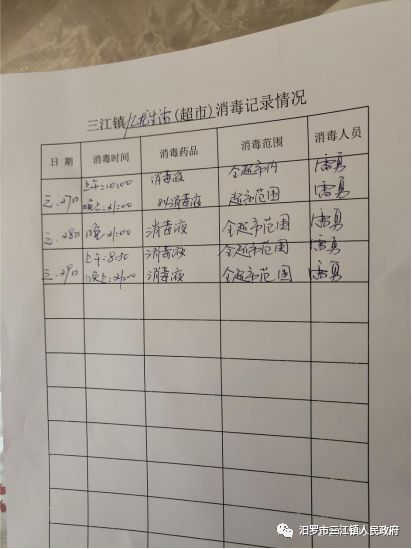 三江镇亿龙生活(超市)消毒记录情况
日 期 消毒时间 消毒药品 消毒范围 消毒人员
三.27日 上午:10:00 消毒液 全超市内 雷勇
晚上:21:00 消毒液 超市范围 雷勇
三.28日 晚:21:00 消毒液 全超市范围 雷勇
三.29日 上午:8:30 消毒液 全超市范围 雷勇
晚上:21:00 消毒液 全超市范围 雷勇
汨罗市三江镇人民政府